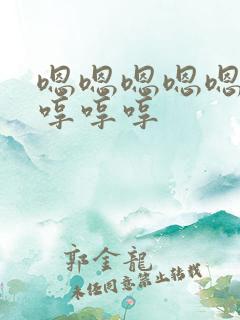 嗯嗯嗯嗯嗯
哼哼哼
郭金龍
未经同意禁止转载